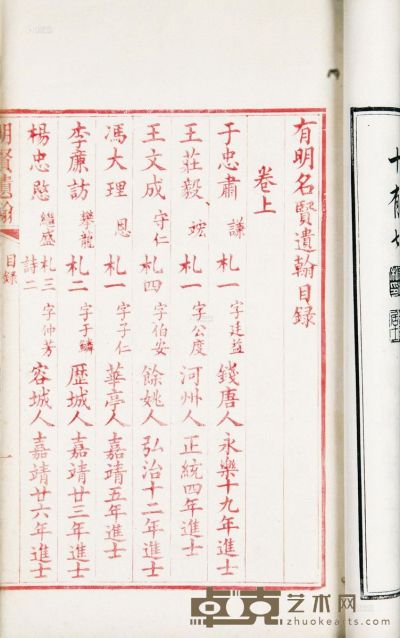 有明名賢遺翰目錄
卷上
于忠肅 謙 札一 字廷益 錢唐人 永樂十九年進士
王莊毅 竑 札一 字公度 河州人 正統四年進士
王文成 守仁 札四 字伯安 餘姚人 弘治十二年進士
馮大理 恩 札一 字子仁 華亭人 嘉靖五年進士
李廉訪 攀龍 札二 字于鱗 歷城人 嘉靖廿三年進士
楊忠愍 繼盛 札三 詩二 字仲芳 容城人 嘉靖廿六年進士
明賢遺翰 目錄 一
卓克艺术网
zhuokearts.com